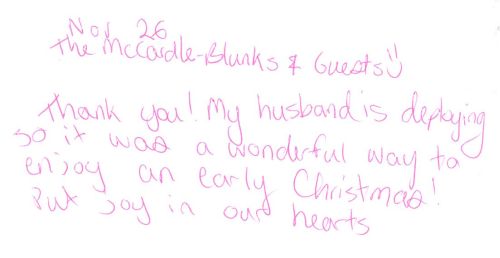 Nov 26
The McCardle-Blunks & Guests
Thank you! My husband is deploying
so it was a wonderful way to
enjoy an early Christmas!
Put joy in our hearts